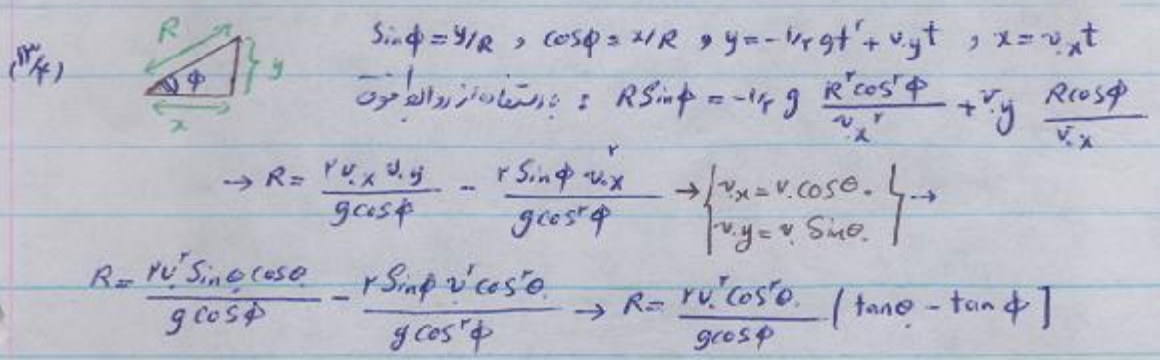 ۳۴)
R
φ
y
x
Sinφ = y/R , cosφ = x/R , y = -۱/۲ gt² + v₀yt , x = v₀xt
با استفاده از روابط فوق : RSinφ = -۱/۲ g R²cos²φ / v₀x² + v₀y Rcosφ / v₀x
→ R = ۲v₀x v₀y / gcosφ - ۲Sinφ v₀x² / gcos²φ → { v₀x = v₀cosθ₀ v₀y = v₀ Sinθ₀ } →
R = ۲v₀² Sinθ₀ cosθ₀ / gcosφ - ۲Sinφ v₀² cos²θ₀ / gcos²φ → R = ۲v₀² cos²θ₀ / gcosφ [tanθ₀ - tanφ]